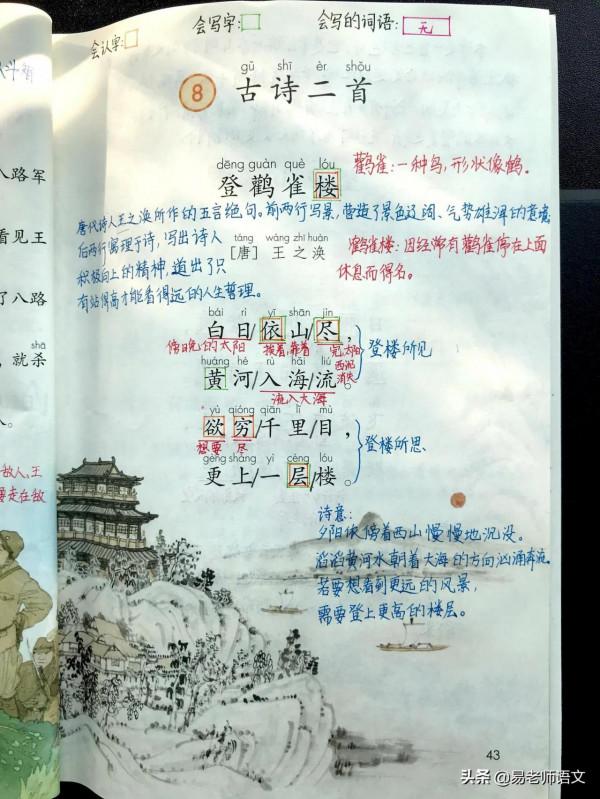 会认字:
会写字:
会写的词语: 无
gǔ shī èr shǒu
8 古诗二首
dēng guàn què lóu
登鹳雀楼
鹳雀:一种鸟,形状像鹤。
唐代诗人王之涣所作的五言绝句。前两行写景,营造了景色辽阔、气势雄浑的意境
后两行寓理于诗,写出诗人
积极向上的精神,道出了只
有站得高才能看得远的人生哲理。
táng wáng zhī huàn
[唐] 王之涣
鹳雀楼:因经常有鹳雀停在上面
休息而得名。
bái rì yī shān jìn
白日/依山/尽,
傍晚的太阳 挨着,靠着 完,太阳
西沉
消失
登楼所见
huáng hé rù hǎi liú
黄河/入海/流。
流入大海
yù qióng qiān lǐ mù
欲穷/千里/目,
想要 尽
登楼所思
gèng shàng yì céng lóu
更上/一层/楼。
诗意:
夕阳依傍着西山慢慢地沉没。
滔滔黄河水朝着大海的方向汹涌奔流。
若要想看到更远的风景,
需要登上更高的楼层。
八路军
看见王
了八路
shā
,就杀
敌人,王
要走在敌
43
头条 @易老师语文